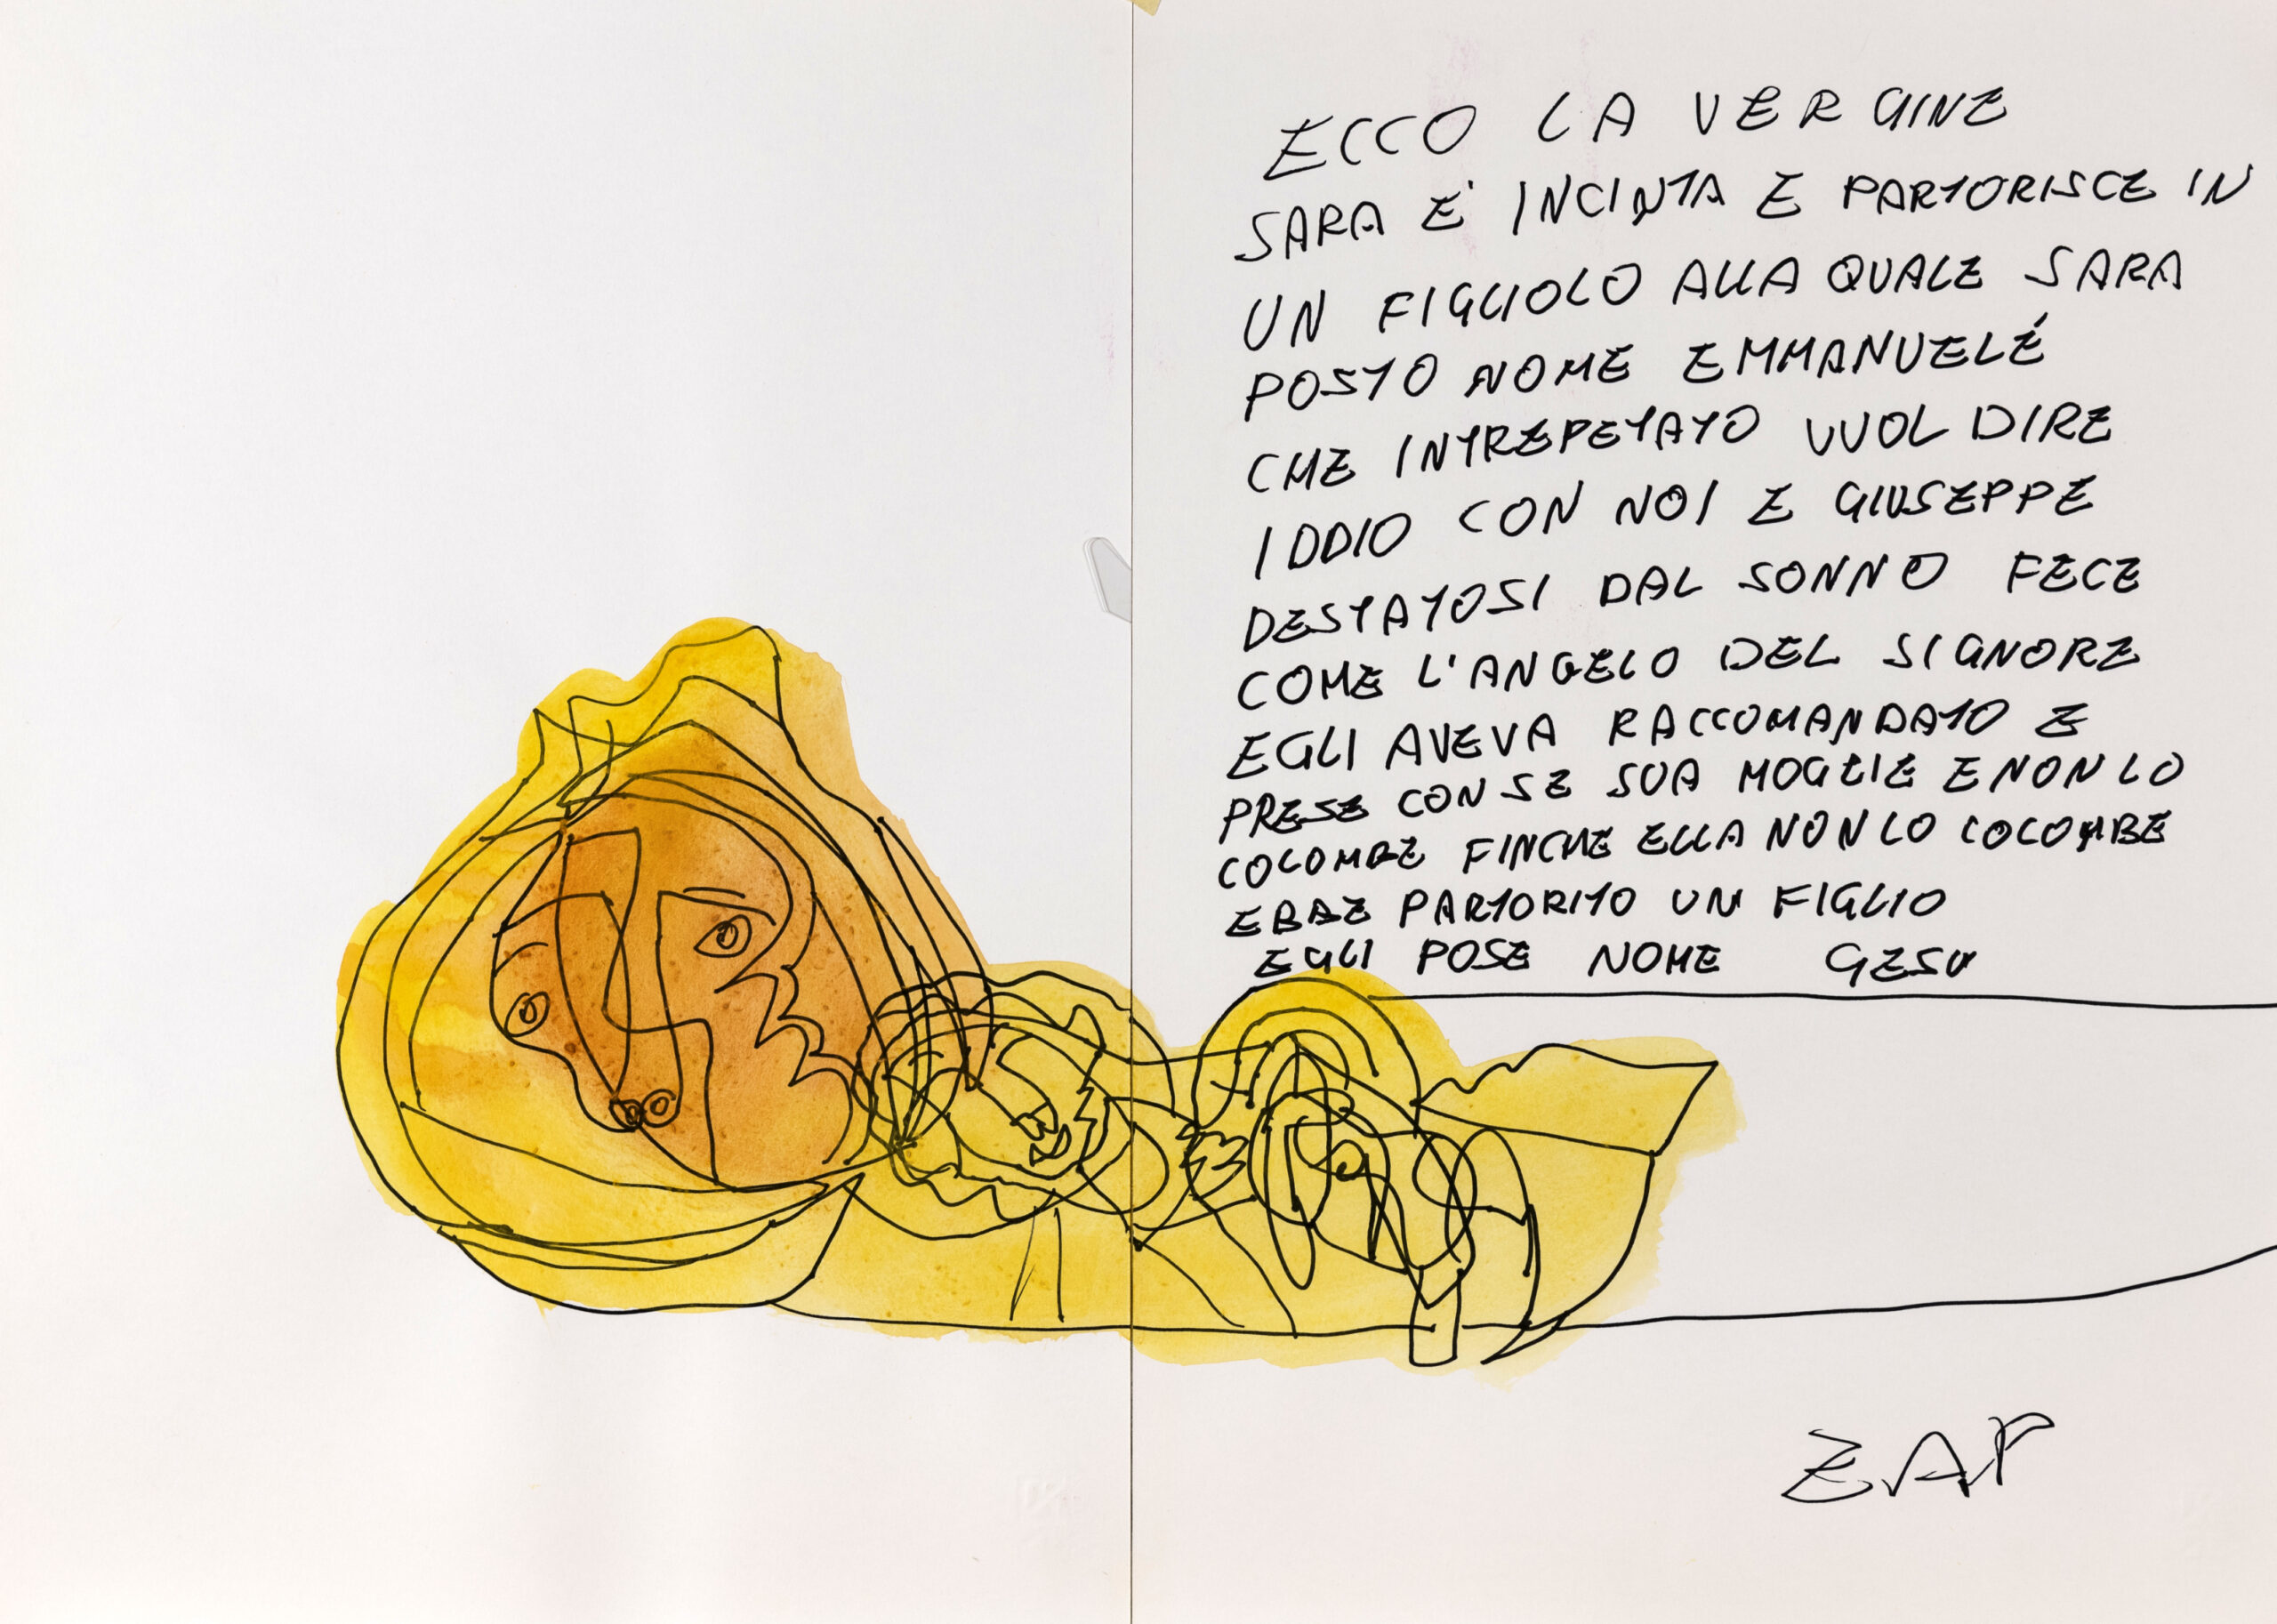 ECCO LA VERGINE
SARA E' INCINTA E PARTORISCE IN
UN FIGLIOLO ALLA QUALE SARA
POSTO NOME EMMANUELÉ
CHE INTREPETATO VUOL DIRE
IDDIO CON NOI E GIUSEPPE
DESTATOSI DAL SONNO FECE
COME L'ANGELO DEL SIGNORE
EGLI AVEVA RACCOMANDATO E
PRESE CON SE SUA MOGLIE E NON LO
COLOMBE FINCHE ELLA NON LO COLOMBE
EBBE PARTORITO UN FIGLIO
EGLI POSE NOME GESU
ZAP